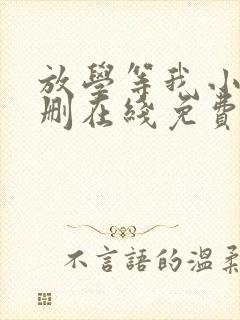 放學等我小
刪在綫免費
不言語的溫柔